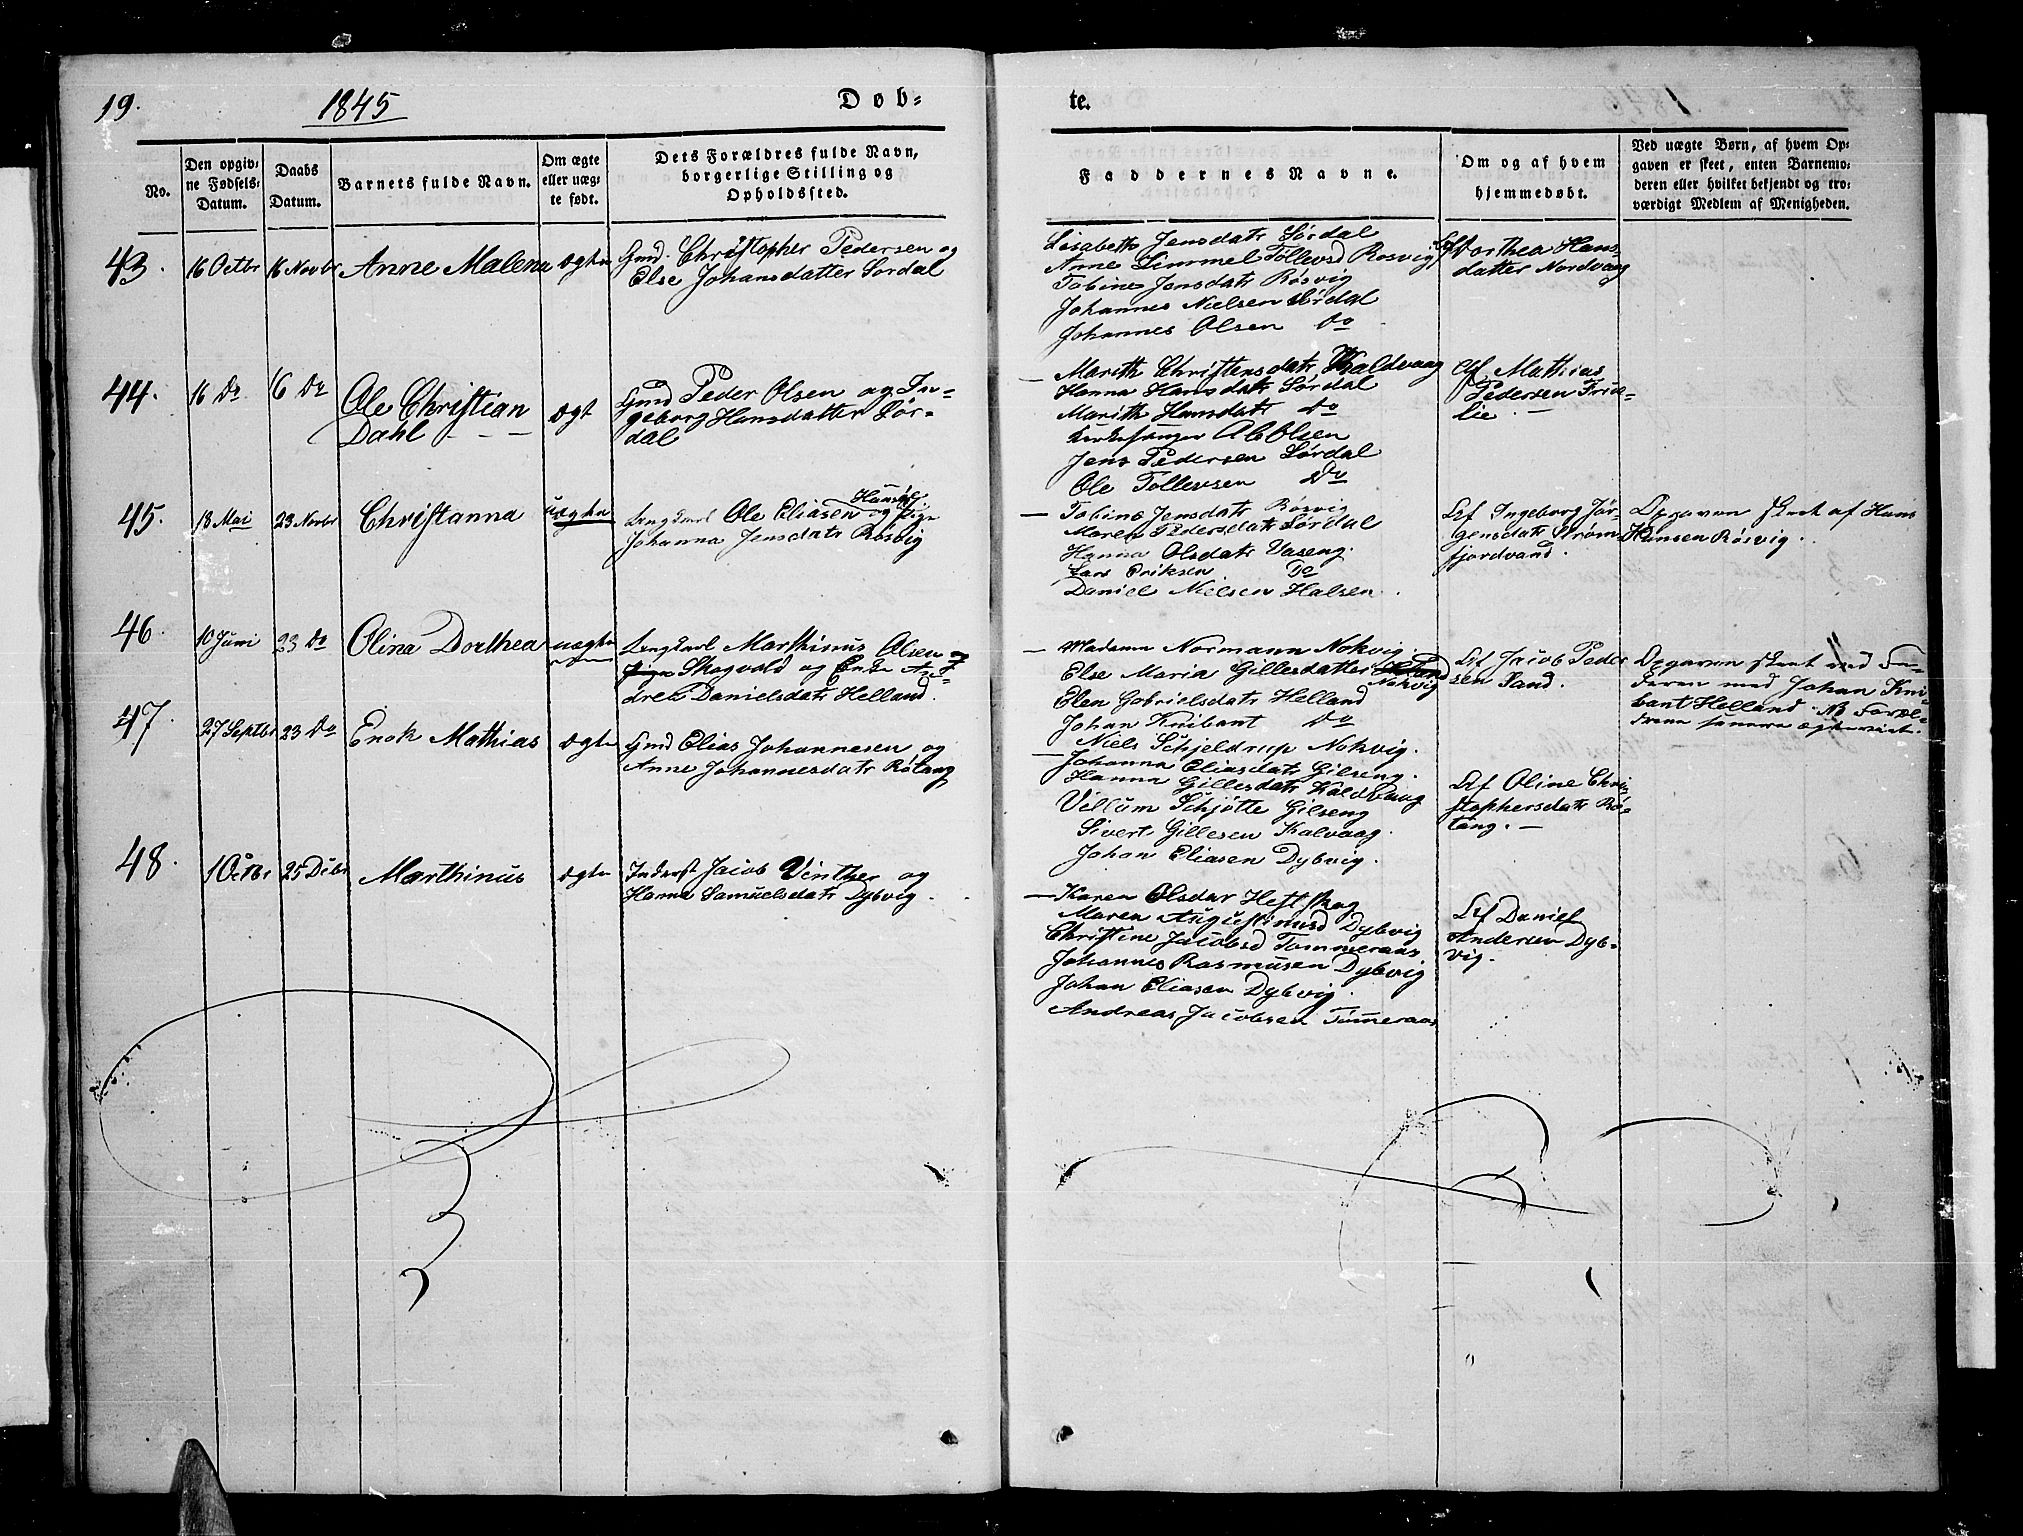 19.
1845
Døb-
te.
No.
Den opgiv-
ne Fødsels-
Datum.
Daabs
Datum.
Barnets fulde Navn.
Om ægte
eller uæg-
te født.
Dets Forældres fulde Navn,
borgerlige Stilling og
Opholdssted.
Faddernes Navne.
Om og af hvem
hjemmedøbt.
Ved uægte Børn, af hvem Op-
gaven er skeet, enten Barnemo-
deren eller hvilket bekjendt og tro-
værdigt Medlem af Menigheden.
43.
16 Octbr
16 Novbr
Anne Malena
ægte
Gmd. Christopher Pedersen og
Else Johansdatter Sørdal
Lisabeth Jensdatr Sørdal
Anne Simmel Tollevsd Rosvig
Tobine Jensdatr Røsvig
Johannes Nielsen Sørdal
Johannes Olsen Do
Af Dorthea Hans-
datter Nordvaag
44.
16 Do
16 Do
Ole Christian
Dahl
ægt
Gmd Peder Olsen og In-
geborg Hansdatter Sør-
dal
Marith Christensdatr Kaldvaag
Hanna Hansdatr Sørdal
Marith Hansdatr do
Kirkesanger Ab Olsen
Jens Pedersen Sørdal
Ole Tollevsen Do
Af Mathias
Pedersen Trid-
lie.
45.
18 Mai
23 Novbr
Christanna
uægte
Ungkarl Ole Eliasen og Pige
Johanna Jensdatr Røsvig
Tobine Jensdatr Røsvig
Maren Pedersdatr Sørdal
Hanna Olsdatr Vaseng.
Lars Eriksen Do
Daniel Nielsen Halsen.
Af Ingeborg Jør-
gensdatr Strøm-
fjordvand.
Opgaven skeet af Hans
Hansen Røsvig.
46.
10 Juni
23 Do
Olina Dorthea
uægte
Ungkarl Marthinus Olsen
Skogvold og Enke An-
drea Danielsdatr Helland.
Madame Normann Nohvig
Else Maria Gillesdatter
Nohvig
Elen Gabrielsdatr Helland
Johan Knibant do
Niels Schjeldrup Nohvig.
Af Jacob Peder
sen Sand.
Opgaven skeet ved Fa-
deren med Johan Kni-
bant Helland. NB Foræl-
drene
47.
27 Septbr
23 Do
Enok Mathias
ægte
Gmd Elias Johannesen og
Anne Johannesdatr Røtang
Johanna Eliasdatr Gilseng.
Hanna Gillesdatr Kaldvaag
Villum Schjøtte Gilseng
Sivert Gillesen Kalvaag.
Johan Eliasen Dybvig.
Af Oline Chri-
stophersdatr Rø-
tang.
48.
1 Octbr
25 Debr
Marthinus
ægte
Inderst Jacob Vinther og
Hanna Samuelsdatr Dybvig.
Karen Olsdar Heftskog
Maren Augustinusd Dybvig
Christine Jacobsd Tømmeraas
Johannes Rasmusen Dybvig
Johan Eliasen Dybvig.
Andreas Jacobsen Tømmeraas
Af Daniel
Andersen Dyb-
vig.